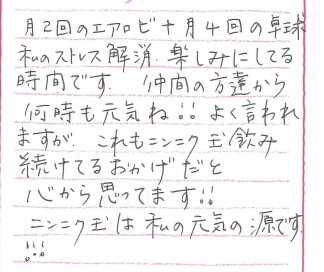 月2回のエアロビ十月4回の卓球
私のストレス解消、楽しみにしてる
時間です。仲間の方達から
何時も元気ね!!よく言われ
ますが、これもニンニク玉飲み
続けてるおかげだと
心から思ってます!!
ニンニク玉は私の元気の源です
!!!